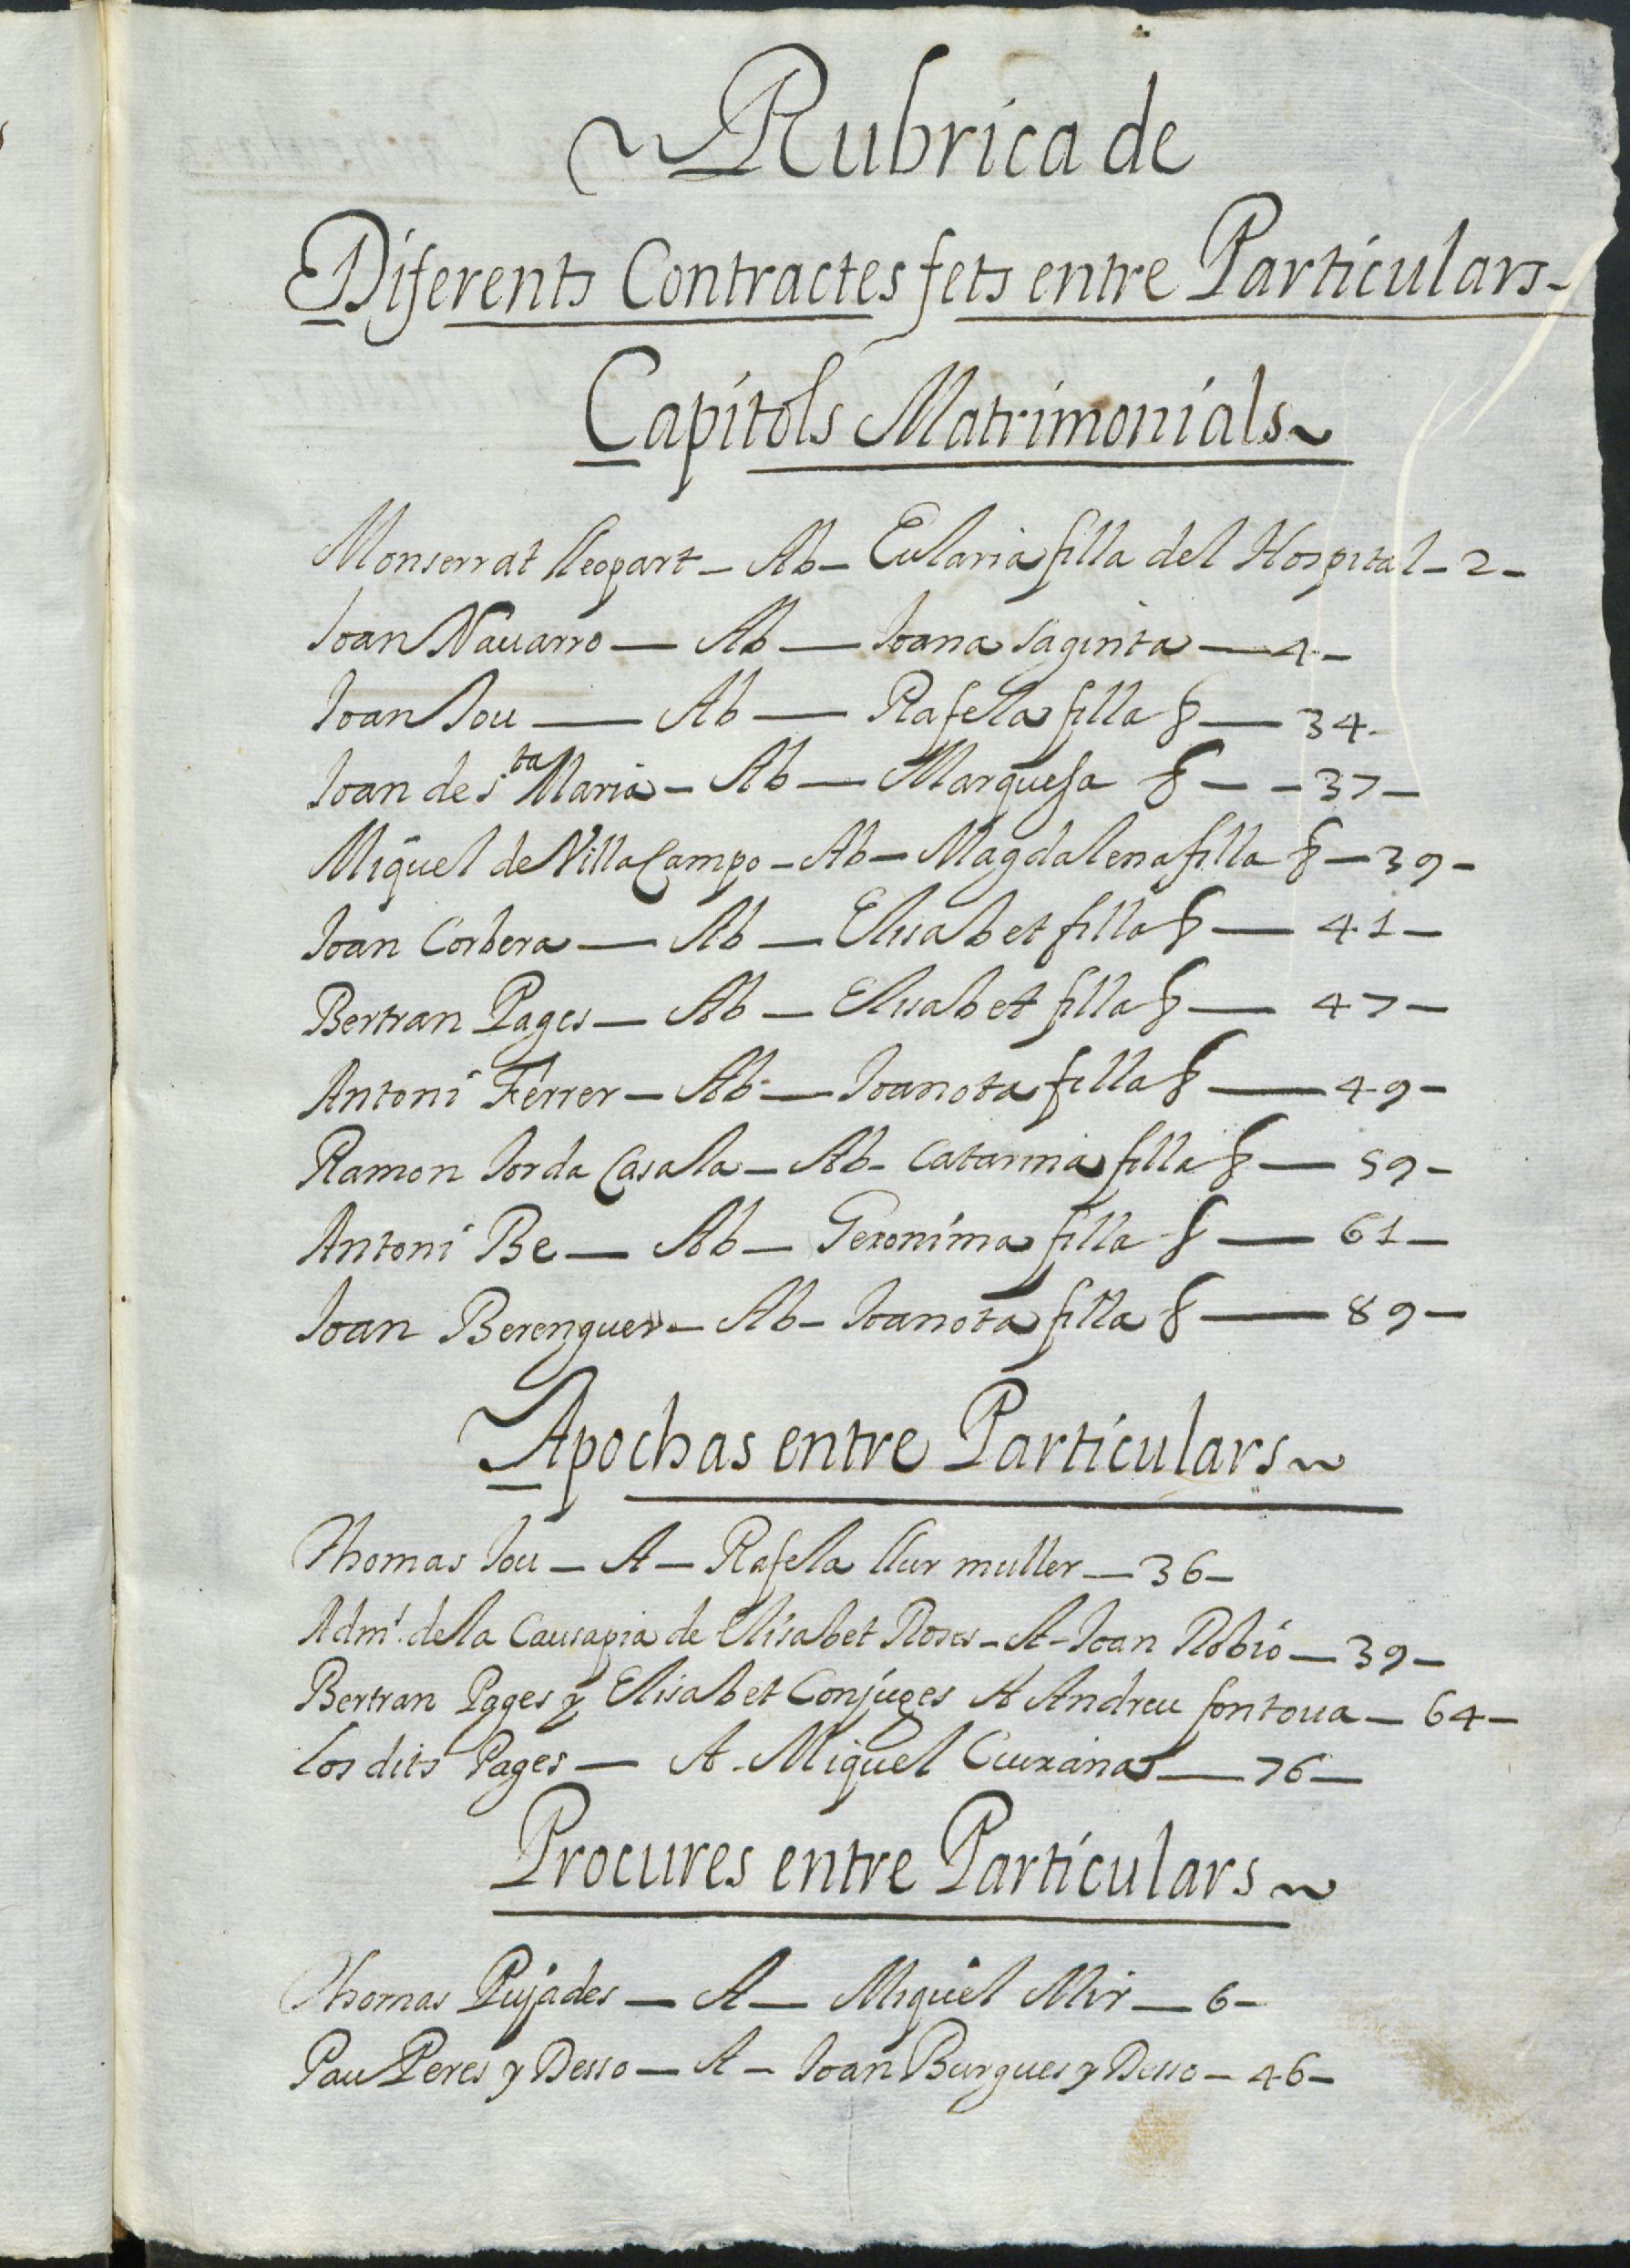 Rubrica de
Diferents Contractes fets entre Particulars-
Capitols Matrimonials~
Monserrat lleopart - Ab - Eularia filla del Hospital - 2 -
Joan Nauarro — Ab — Joana saginta — 4 -
Joan Jou — Ab — Rafela filla &— 34 -
Joan de sta Maria - Ab — Marquesa & - - 37 -
Miquel de Villa Campo - Ab - Magdalena filla & - 39 -
Joan Corbera — Ab — Elisabet filla & — 41 -
Bertran Pages — Ab — Elisabet filla & — 47 -
Antoni Ferrer - Ab — Joanota filla & — 49 -
Ramon Jorda Casala - Ab - Catarina filla & — 59 -
Antoni Be — Ab — Geronima filla & — 61 -
Joan Berenguer - Ab - Joanota filla & — 89 -
Apochas entre Particulars~
Thomas Jou - A - Rafela llur muller - 36 -
Admr. de la Causapia de Elisabet Roses - A - Joan Robió - 39 -
Bertran Pages y Elisabet Conjuges A Andreu fontoua - 64 -
los dits Pages — A - Miquel — 76 -
Procures entre Particulars~
Thomas Pujades — A — Miquel Mir — 6 -
Pau Peres y Desso — A - Joan Burgues y Desso - 46 -